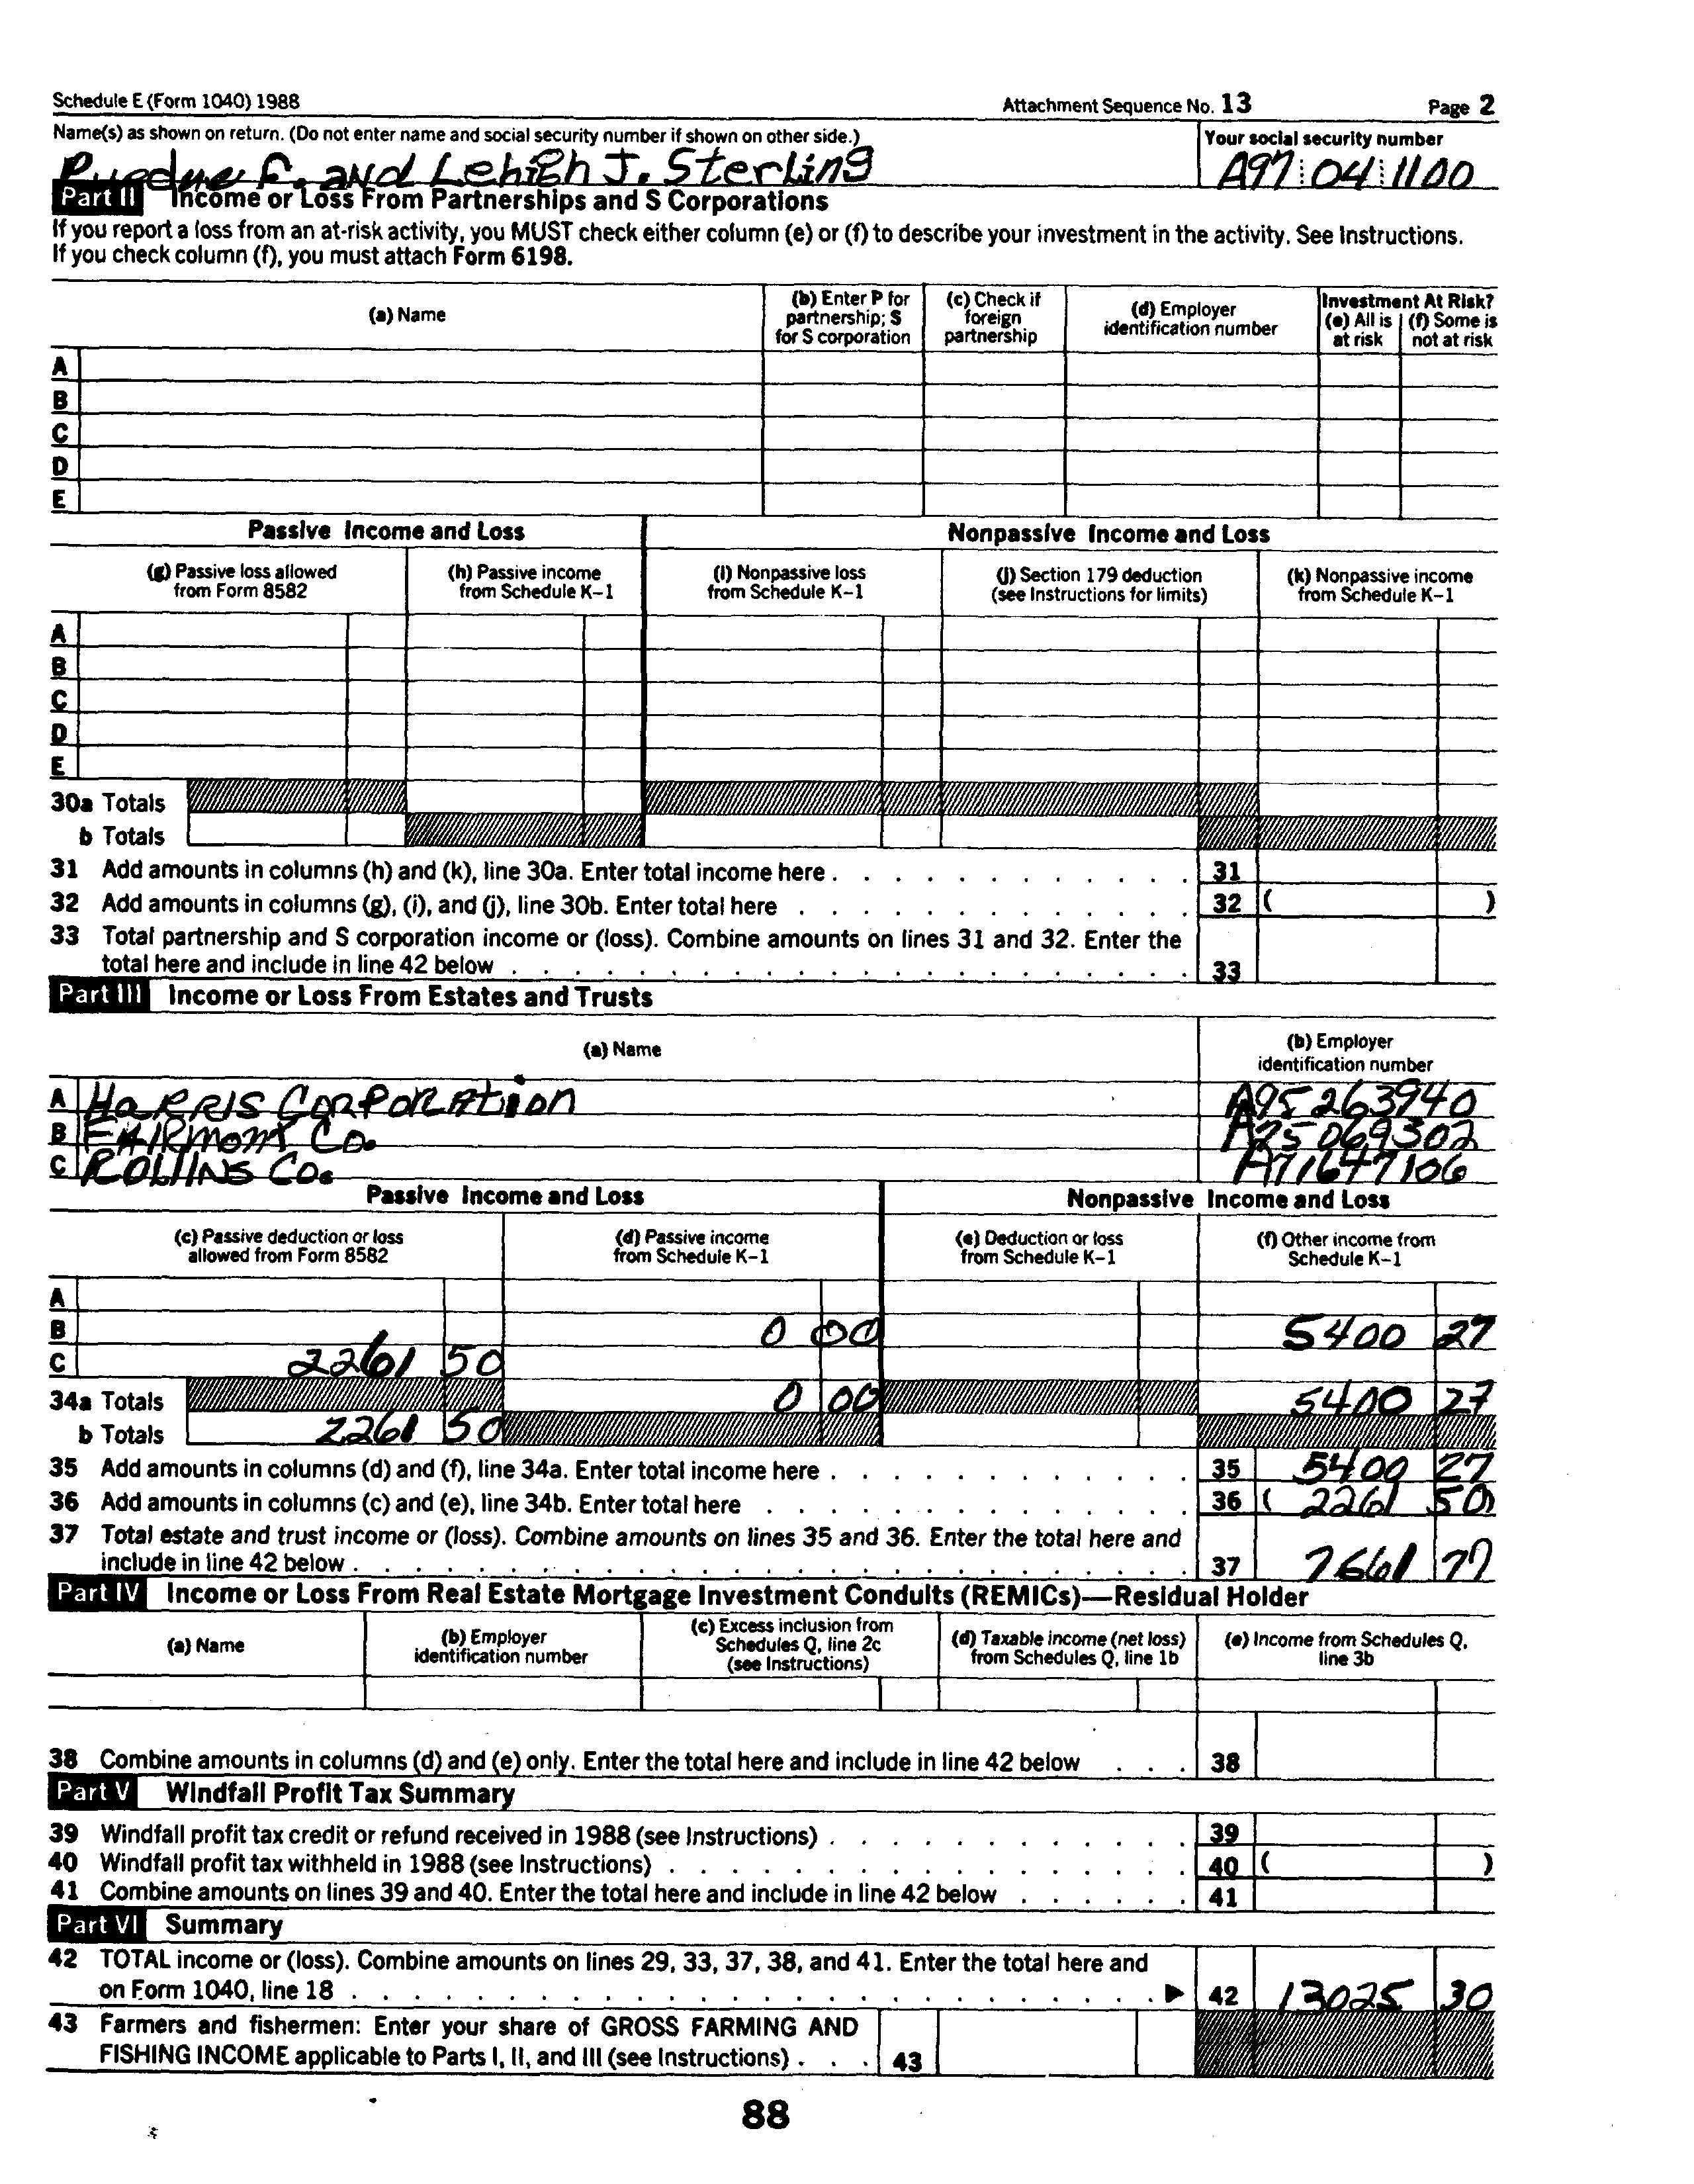 Schedule E (Form 1040) 1988 Attachment Sequence No. 13 Page 2
Name(s) as shown on return. (Do not enter name and social security number if shown on other side.) Your social security number
Purdue F. and Lehigh J. Sterling A97 04 1100
Part II Income or Loss From Partnerships and S Corporations
If you report a loss from an at-risk activity, you MUST check either column (e) or (f) to describe your investment in the activity. See Instructions.
If you check column (f), you must attach Form 6198.
(a) Name (b) Enter P for partnership; S for S corporation (c) Check if foreign partnership (d) Employer identification number Investment At Risk? (e) All is at risk (f) Some is not at risk
A
B
C
D
E
Passive Income and Loss Nonpassive Income and Loss
(g) Passive loss allowed from Form 8582 (h) Passive income from Schedule K-1 (i) Nonpassive loss from Schedule K-1 (j) Section 179 deduction (see Instructions for limits) (k) Nonpassive income from Schedule K-1
A
B
C
D
E
30a Totals
b Totals
31 Add amounts in columns (h) and (k), line 30a. Enter total income here . . . 31
32 Add amounts in columns (g), (i), and (j), line 30b. Enter total here . . . 32 ( )
33 Total partnership and S corporation income or (loss). Combine amounts on lines 31 and 32. Enter the
total here and include in line 42 below . . . 33
Part III Income or Loss From Estates and Trusts
(a) Name (b) Employer identification number
A HARRIS CORPORAtion A95263940
B FAIRmont Co. A25069302
C ROllINS CO. A71647106
Passive Income and Loss Nonpassive Income and Loss
(c) Passive deduction or loss allowed from Form 8582 (d) Passive income from Schedule K-1 (e) Deduction or loss from Schedule K-1 (f) Other income from Schedule K-1
A
B 0 00 5400 27
C 2261 50
34a Totals 0 00 5400 27
b Totals 2261 50
35 Add amounts in columns (d) and (f), line 34a. Enter total income here . . . 35 5400 27
36 Add amounts in columns (c) and (e), line 34b. Enter total here . . . 36 ( 2261 50 )
37 Total estate and trust income or (loss). Combine amounts on lines 35 and 36. Enter the total here and
include in line 42 below . . . 37 7661 77
Part IV Income or Loss From Real Estate Mortgage Investment Conduits (REMICs)—Residual Holder
(a) Name (b) Employer identification number (c) Excess inclusion from Schedules Q, line 2c (see Instructions) (d) Taxable income (net loss) from Schedules Q, line 1b (e) Income from Schedules Q, line 3b
38 Combine amounts in columns (d) and (e) only. Enter the total here and include in line 42 below . . . 38
Part V Windfall Profit Tax Summary
39 Windfall profit tax credit or refund received in 1988 (see Instructions) . . . 39
40 Windfall profit tax withheld in 1988 (see Instructions) . . . 40 ( )
41 Combine amounts on lines 39 and 40. Enter the total here and include in line 42 below . . . 41
Part VI Summary
42 TOTAL income or (loss). Combine amounts on lines 29, 33, 37, 38, and 41. Enter the total here and
on Form 1040, line 18 . . . ▶ 42 13025 30
43 Farmers and fishermen: Enter your share of GROSS FARMING AND
FISHING INCOME applicable to Parts I, II, and III (see Instructions) . . . 43
88